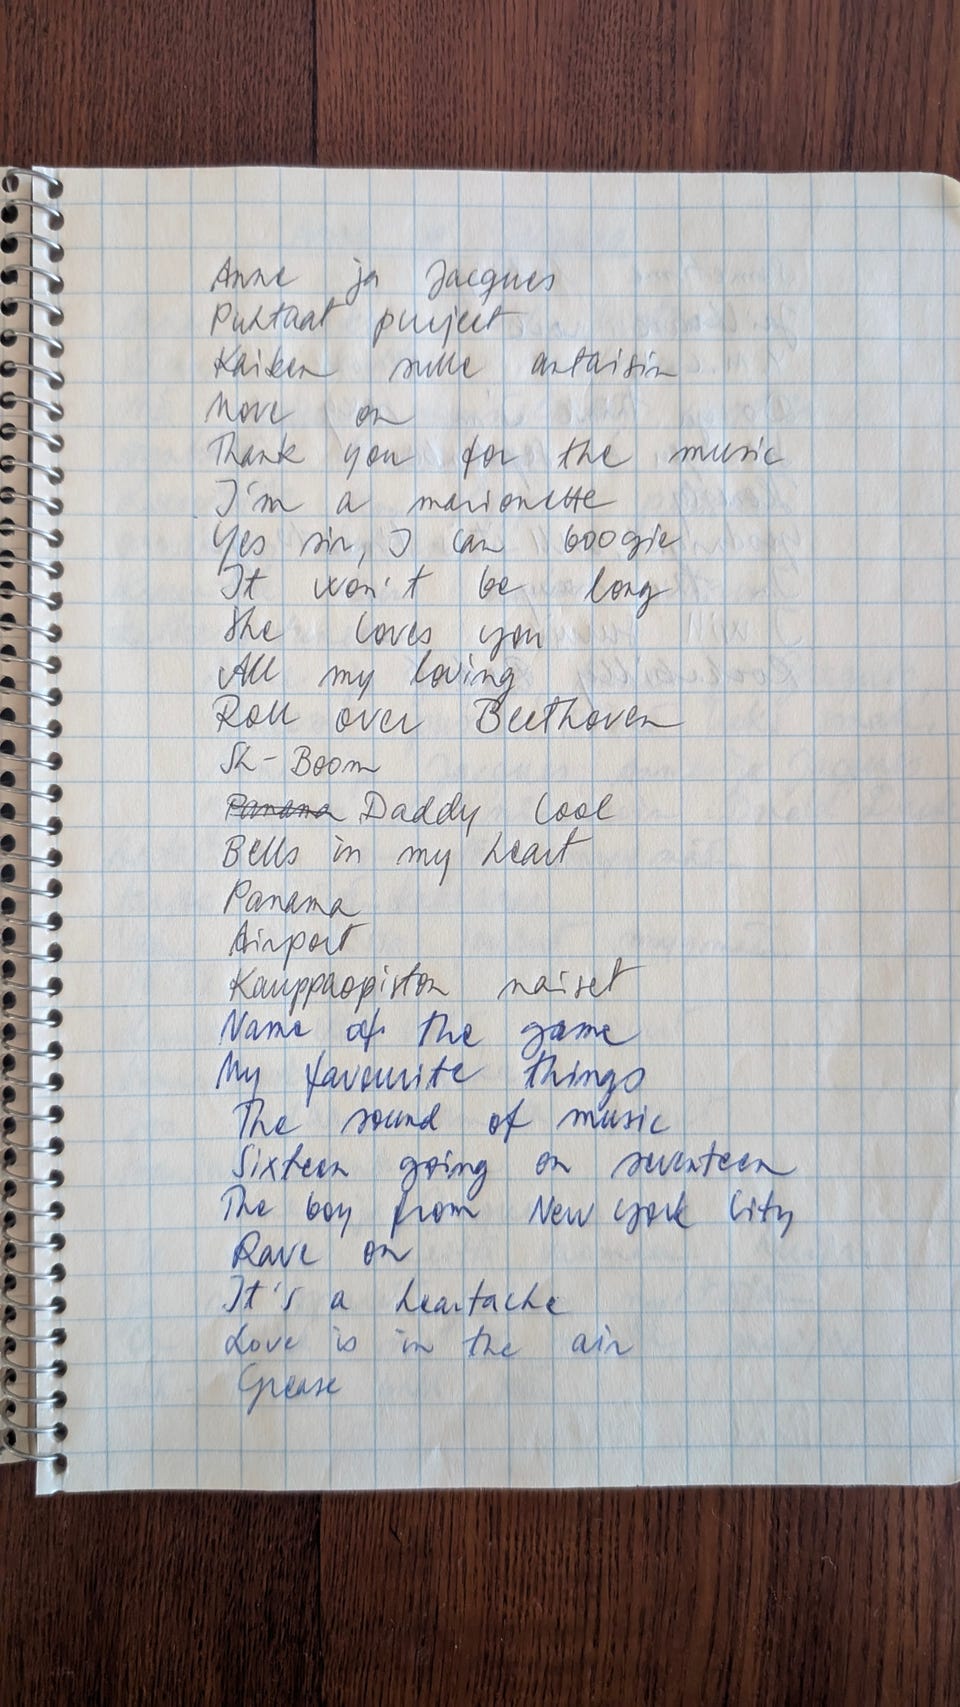 Anne ja Jacques
Puhtaat purjeet
Kaiken sulle antaisin
Move on
Thank you for the music
I'm a marionette
Yes sir, I can boogie
It won't be long
She loves you
All my loving
Roll over Beethoven
Sh-Boom
Panama Daddy Cool
Bells in my heart
Panama
Airport
Kauppaopiston naiset
Name of the game
My favourite things
The sound of music
Sixteen going on seventeen
The boy from New York City
Rave on
It's a heartache
Love is in the air
Grease